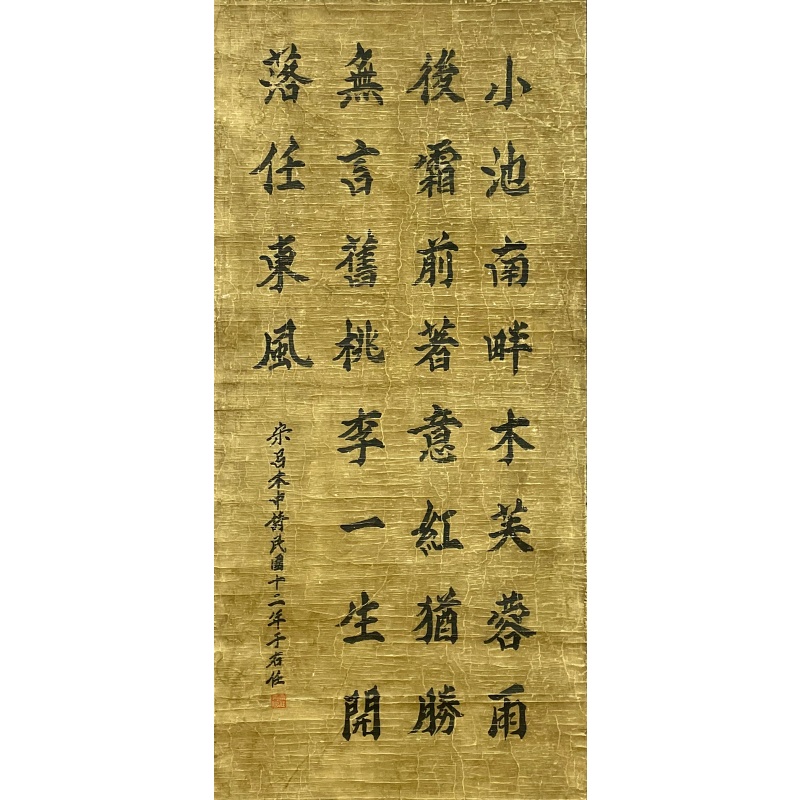 小池南畔木芙蓉雨
後霜前著意紅猶勝
無言舊桃李一生開
落任東風
宋呂本中詩民國十二年于右任